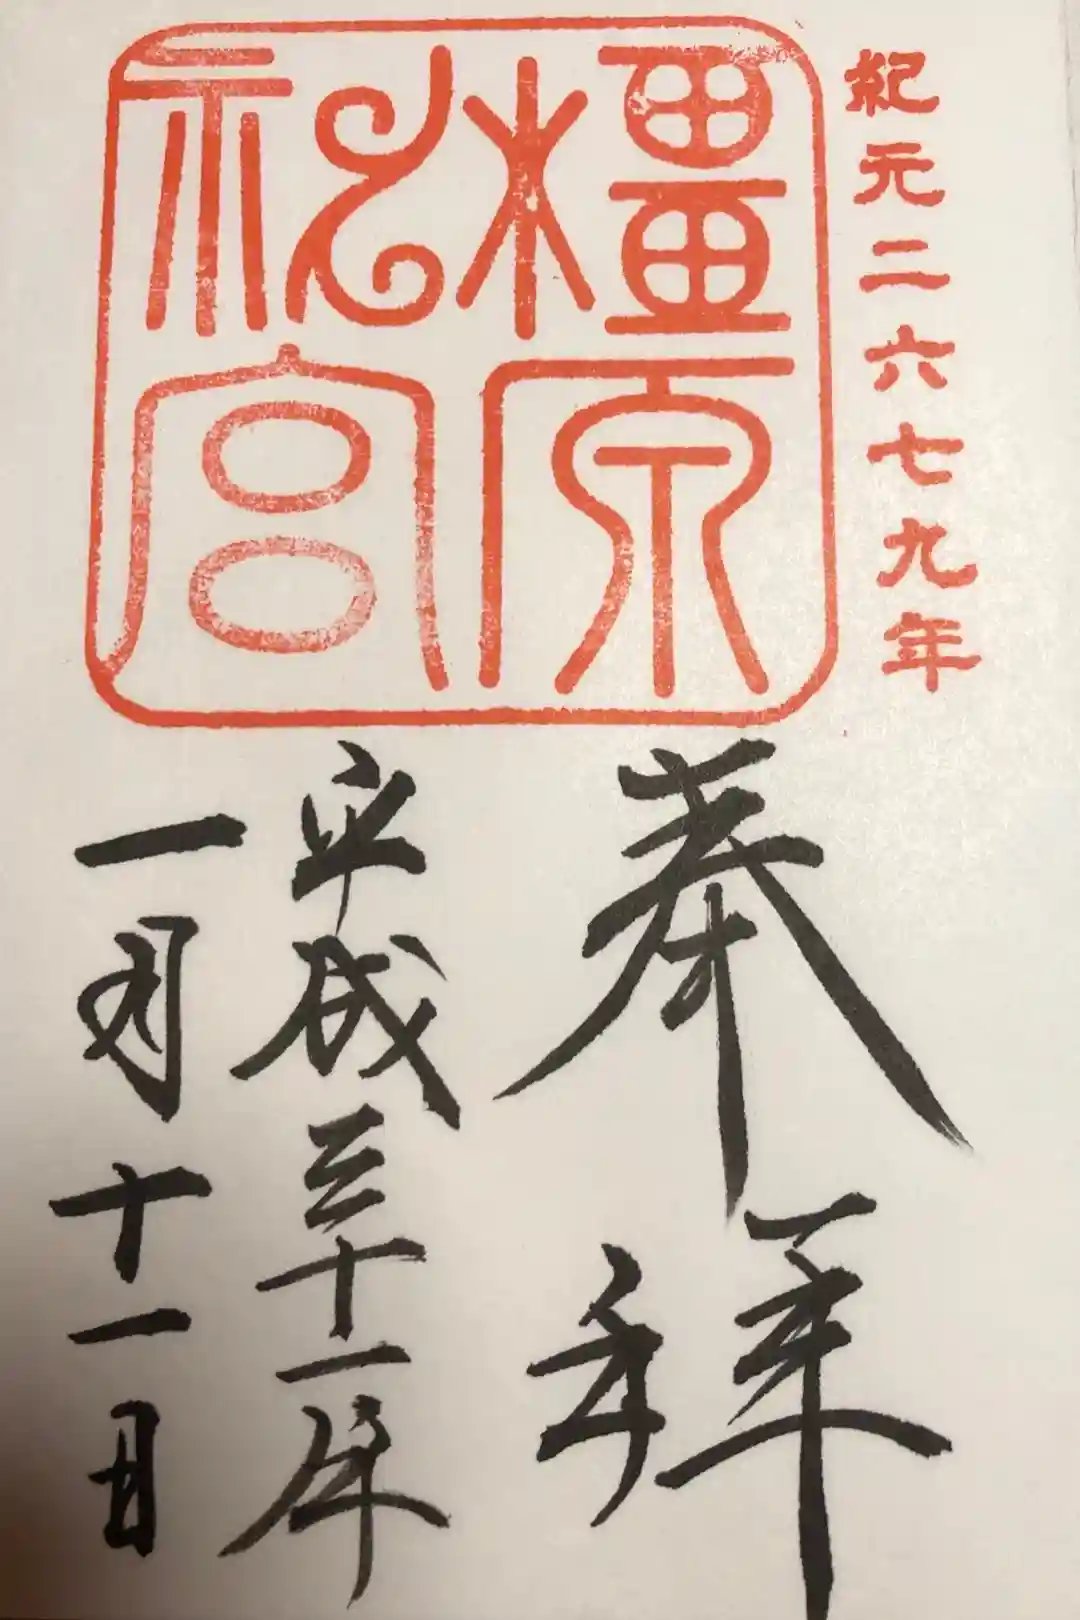 紀元二六七九年
橿原神宮
奉拝
平成三十一年
一月十一日